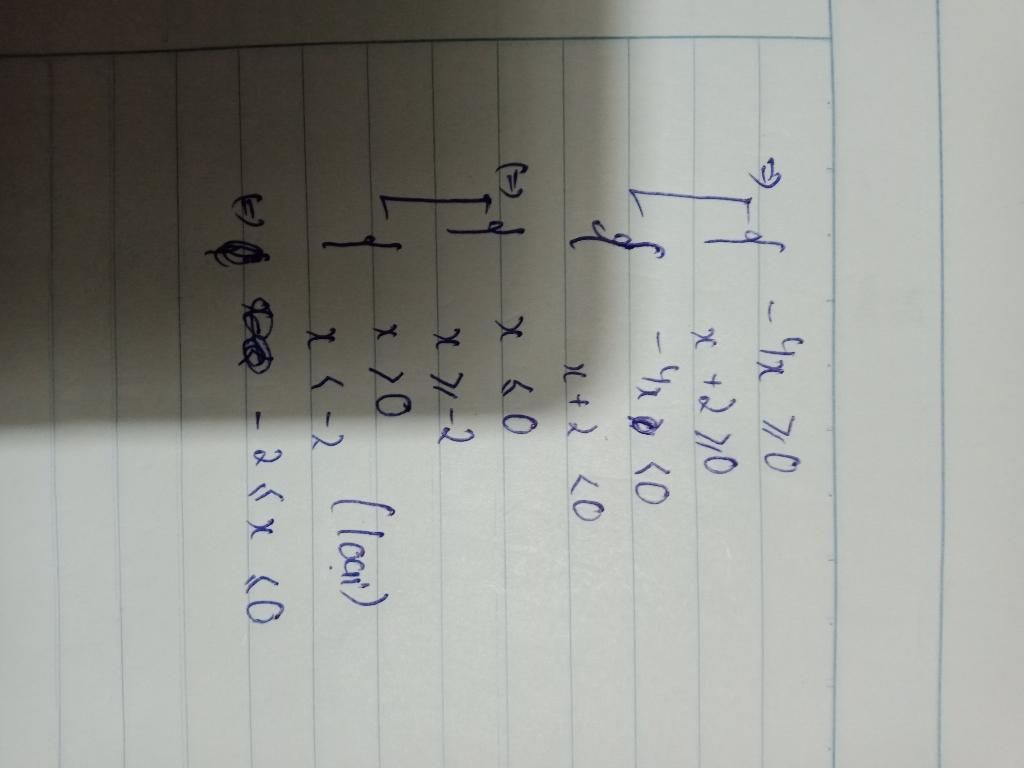 (=) - 4x ≥ 0
x + 2 ≥ 0
- 4x < 0
x + 2 < 0
(=) x ≤ 0
x ≥ -2
x > 0
x < -2 (loại)
(=) - 2 ≤ x ≤ 0